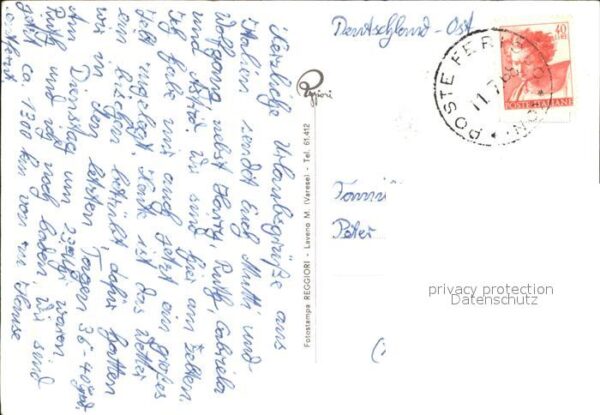 Herzliche Urlaubsgrüße aus
Italien sendet Euch Mutti und
Wolfgang nebst Horst, Ruth, Gabriela
und Astrid. Wir sind hier am Zelten.
Ich habe mir auch jetzt ein großes
Zelt zugelegt. Heute ist das Wetter
ein bischen betrübt dafür hatten
wir in den letzten Tagen 36-40° grd.
Am Dienstag um 23 Uhr waren
Ruth und ich noch baden. Wir sind
jetzt ca. 1300 km von zu Hause
entfernt
Reggiori
Fotostampa REGGIORI - Laveno M. (Varese) - Tel. 61.412
Deutschland-Ost
POSTE
11.7.68
40
LIRE
POSTE ITALIANE
Famili
Peter
privacy protection
Datenschutz